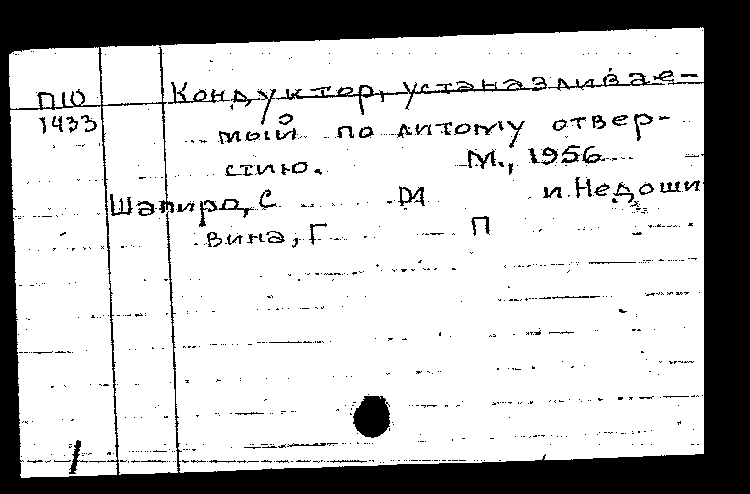 П10 Кондуктор, устанавливае-
1433 мый по литому отвер-
стию. М., 1956
Шапиро, С М и Недоши
вина, Г П